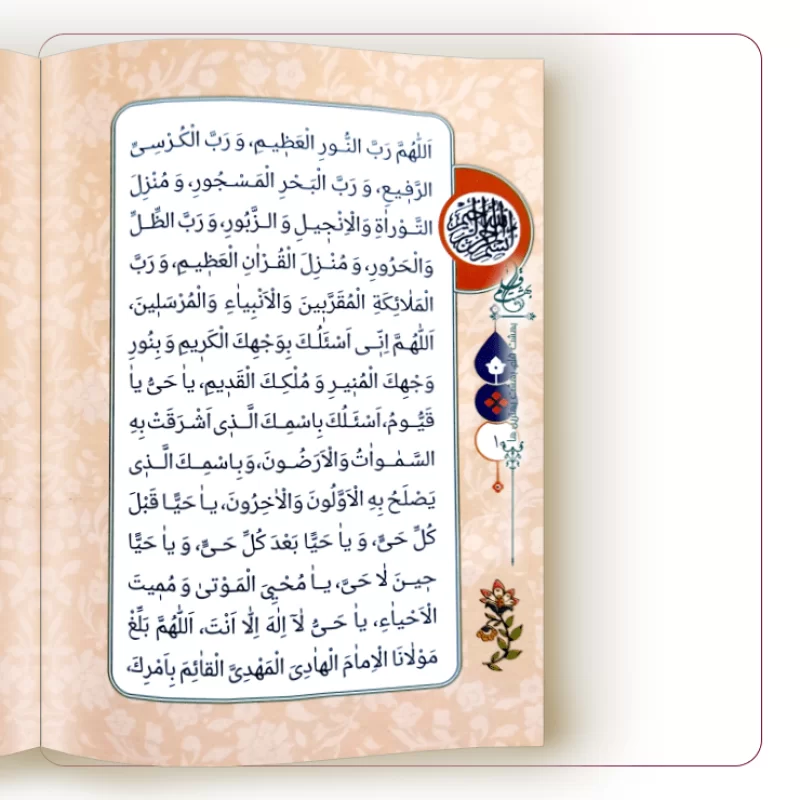 اَللّٰهُمَّ رَبَّ النُّورِ الْعَظِيمِ، وَ رَبَّ الْكُرْسِىِّ
الرَّفِيعِ، وَ رَبَّ الْبَحْرِ الْمَسْجُورِ، وَ مُنْزِلَ
التَّوْراٰةِ وَالْاِنْجِيلِ وَ الزَّبُورِ، وَ رَبَّ الظِّلِّ
وَالْحَرُورِ، وَ مُنْزِلَ الْقُرْاٰنِ الْعَظِيمِ، وَ رَبَّ
الْمَلاٰئِكَةِ الْمُقَرَّبِينَ وَالْاَنْبِياٰءِ وَالْمُرْسَلِينَ،
اَللّٰهُمَّ اِنِّى اَسْئَلُكَ بِوَجْهِكَ الْكَرِيمِ وَ بِنُورِ
وَجْهِكَ الْمُنِيرِ وَ مُلْكِكَ الْقَدِيمِ، ياٰ حَىُّ ياٰ
قَيُّومُ، اَسْئَلُكَ بِاسْمِكَ الَّذِى اَشْرَقَتْ بِهِ
السَّمٰواٰتُ وَالْاَرَضُونَ، وَ بِاسْمِكَ الَّذِى
يَصْلَحُ بِهِ الْاَوَّلُونَ وَالْاٰخِرُونَ، ياٰ حَيًّا قَبْلَ
كُلِّ حَىٍّ، وَ ياٰ حَيًّا بَعْدَ كُلِّ حَىٍّ، وَ ياٰ حَيًّا
حِينَ لاٰ حَىَّ، ياٰ مُحْيِىَ الْمَوْتىٰ وَ مُمِيتَ
الْاَحْياٰءِ، ياٰ حَىُّ لاٰ اِلٰهَ اِلّاٰ اَنْتَ، اَللّٰهُمَّ بَلِّغْ
مَوْلاٰنَا الْاِماٰمَ الْهاٰدِىَ الْمَهْدِىَّ الْقاٰئِمَ بِاَمْرِكَ،
بسم الله الرحمن الرحيم
١٠